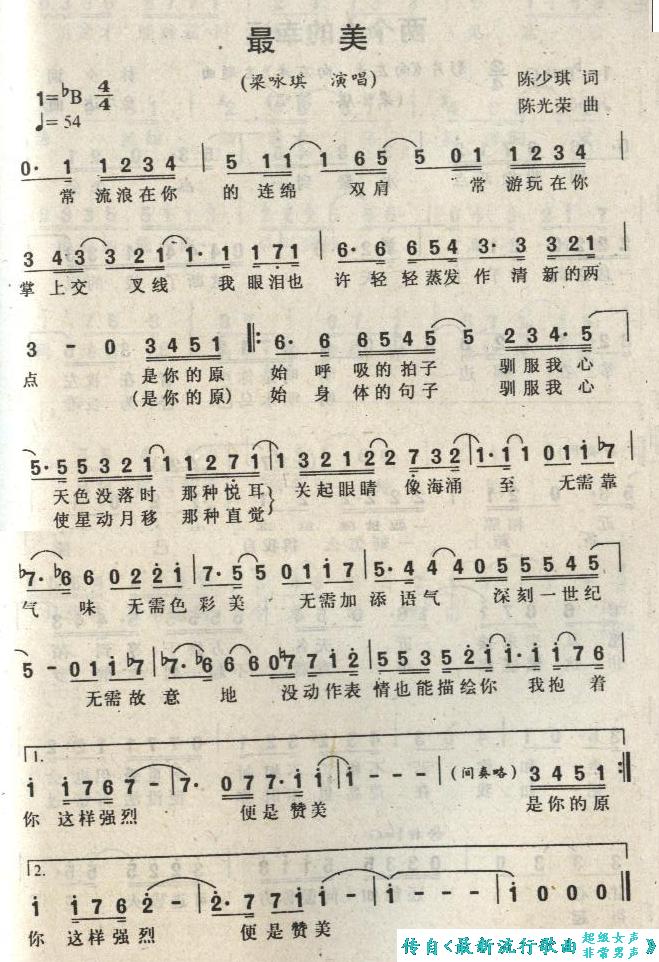 最 美
(梁咏琪 演唱)
1=♭B 4/4
♩=54
陈少琪 词
陈光荣 曲
0· 1 1 2 3 4 | 5 1 1 1 6 5 5 0 1 1 2 3 4 |
常 流浪在你 的 连绵 双肩 常 游玩在你
3 4 3 3 3 2 1 1· 1 1 7 1 | 6· 6 6 5 4 3· 3 3 2 1 |
掌上交 叉线 我 眼泪也 许轻轻蒸发 作清新的两
3 - 0 3 4 5 1 ‖: 6· 6 6 5 4 5 5 2 3 4· 5 |
点 是你的原 始呼吸的拍子 驯服我心
(是你的原) 始身体的句子 驯服我心
5· 5 5 3 2 1 1 1 2 7 1 | 1 3 2 1 2 2 7 3 2 | 1· 1 1 0 1 1 ♭7 |
天色没落时 那种悦耳 关起眼睛 像海涌 至 无需靠
使星动月移 那种直觉
♭7· ♭6 6 0 2 2 1 | 7· 5 5 0 1 1 7 | 5· 4 4 4 0 5 5 5 4 5 |
气 味 无需色彩美 无需加添语气 深刻一世纪
5 - 0 1 1 ♭7 | ♭7· ♭6 6 6 0 ♭7 7 1 2 | 5 5 3 5 2 1 1· 1 1 7 6 |
无需故意地 没动作表情也能描绘你 我抱着
1.
1 1 7 6 7 - | 7· 0 7 7· 1 1 | 1 - - - | (间奏略) 3 4 5 1 :‖
你 这样强烈 便是赞美 是你的原
2.
1 1 7 6 2 - | 2· 7 7 1 1 - | 1 - - - | 1 0 0 0 ‖
你 这样强烈 便是赞美
传自《最新流行歌曲 超级女声 非常男声》